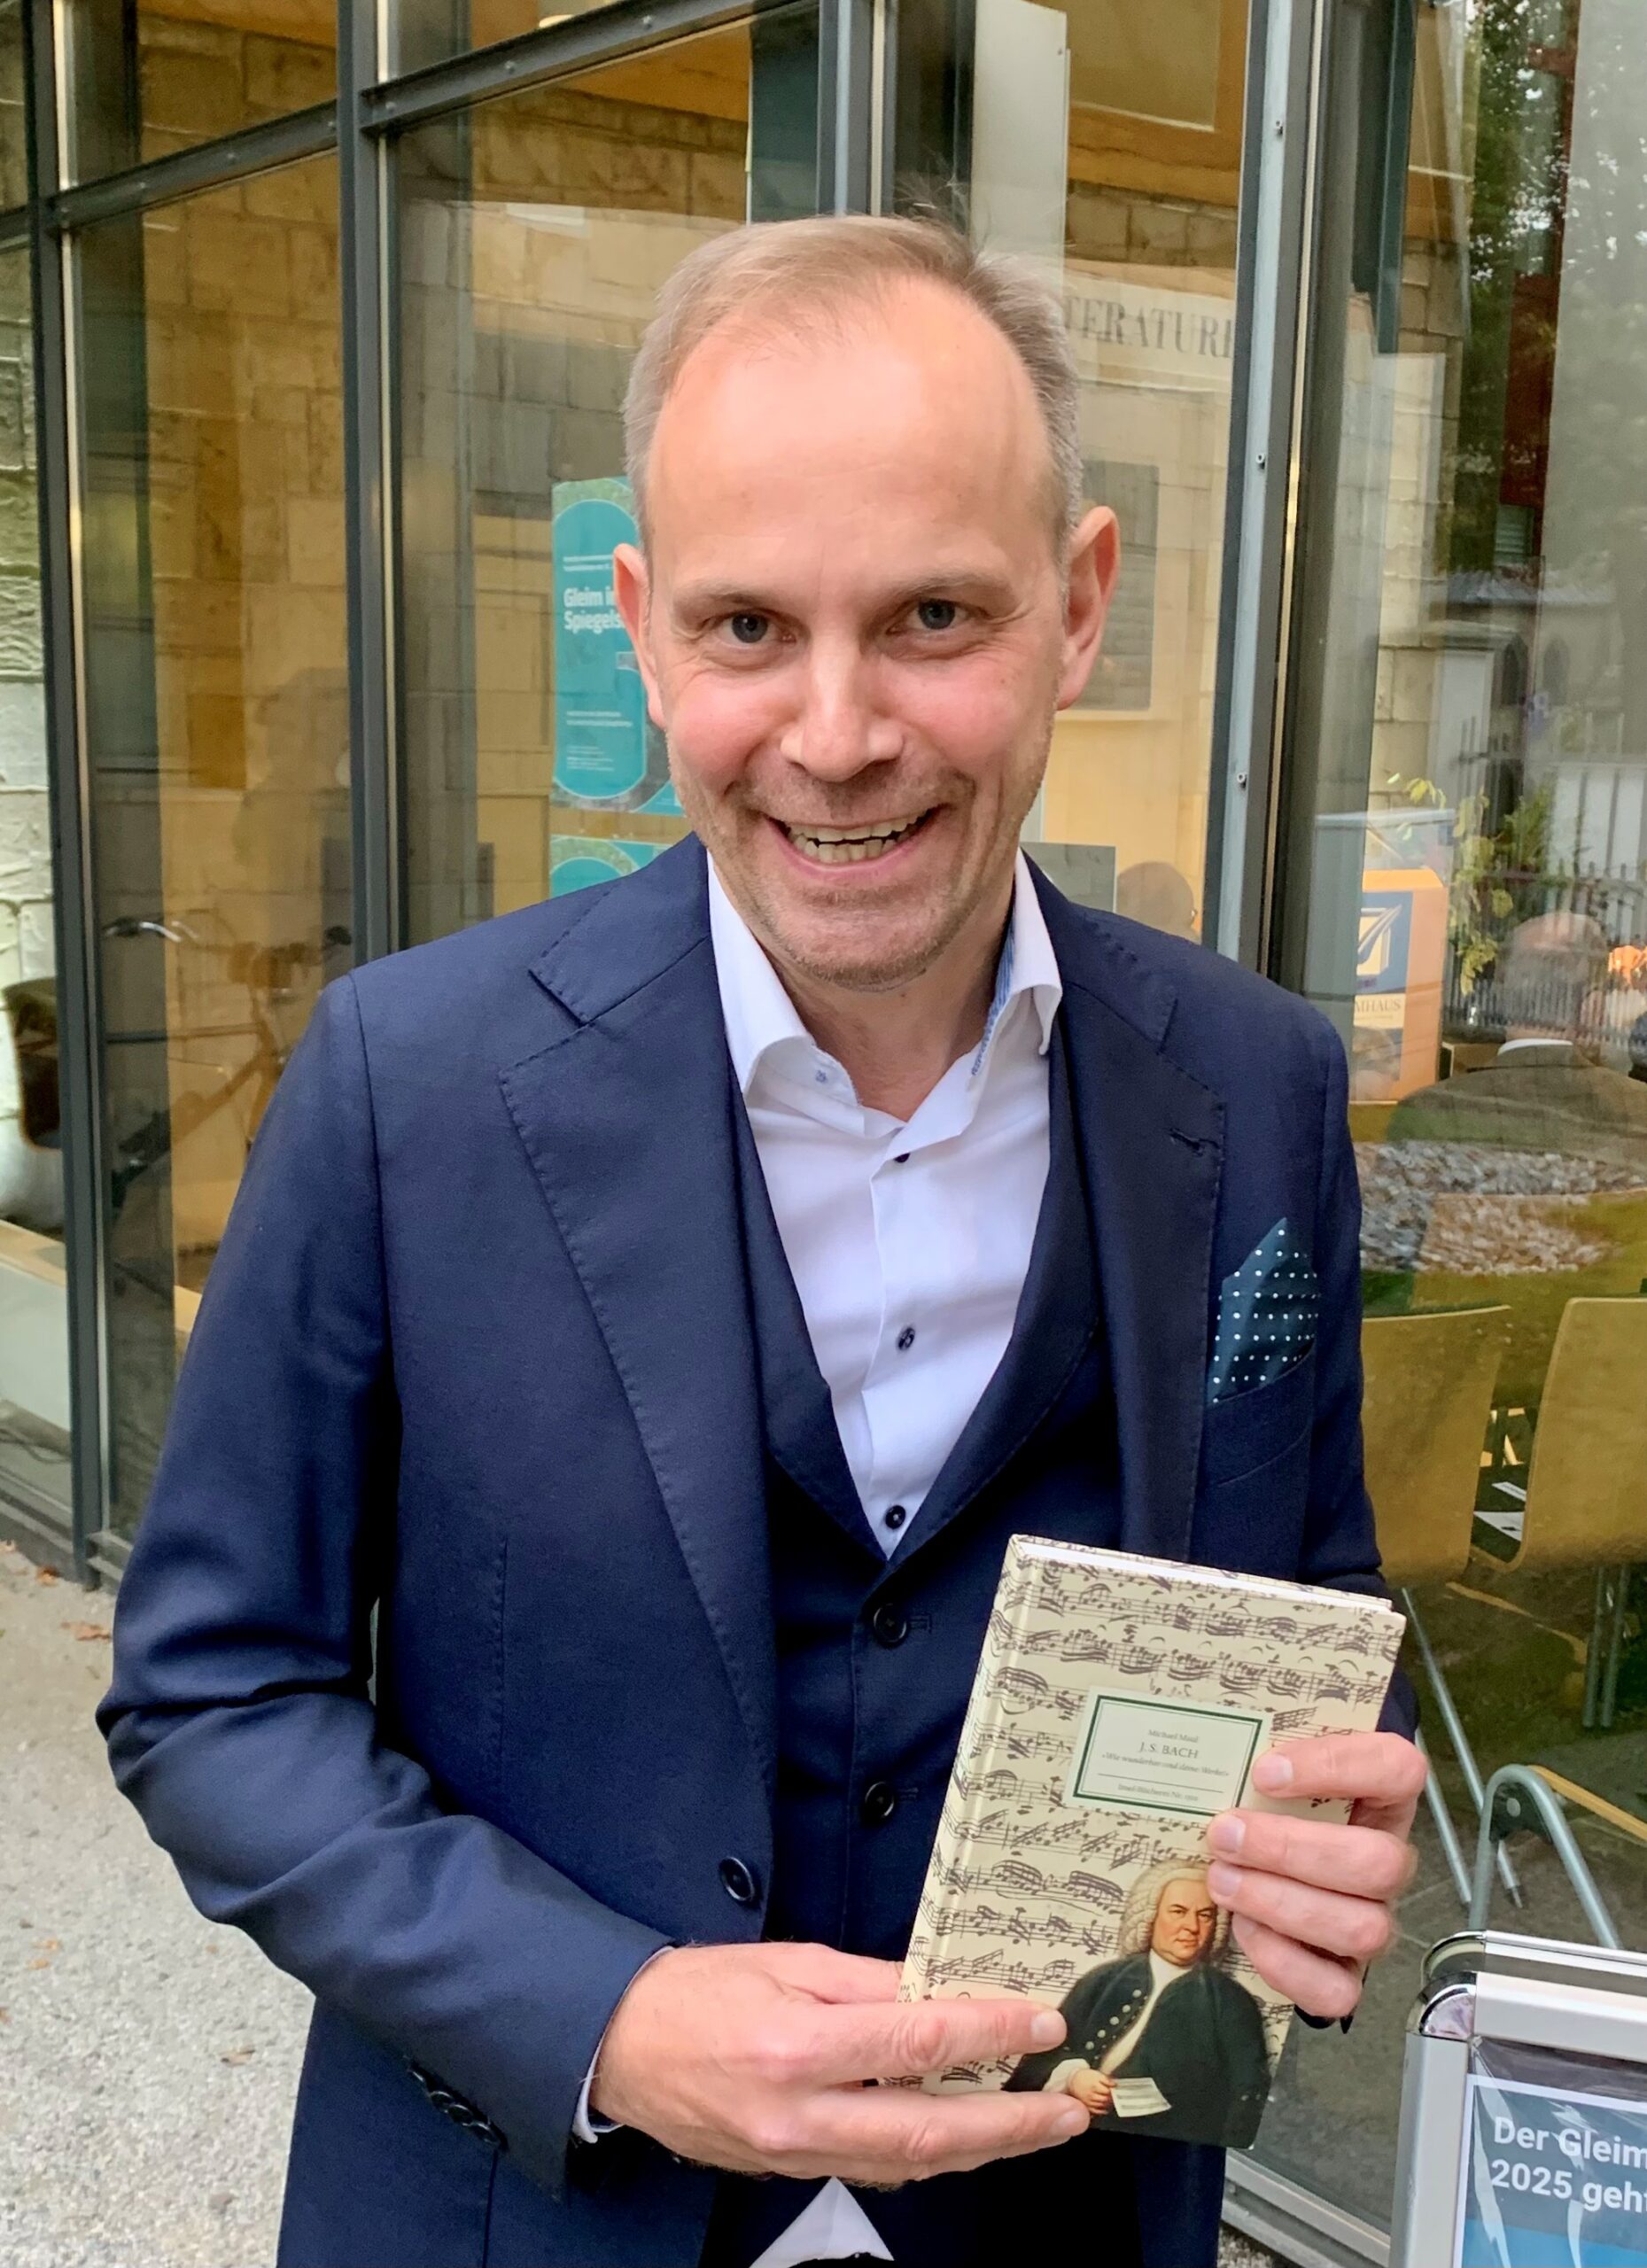 TERATUR
Gleim i
Spiegels
MHAUS
Michael Maul
J. S. BACH
»Wie wunderbar sind deine Werke«
Insel-Bücherei Nr.
Der Gleim
2025 geht